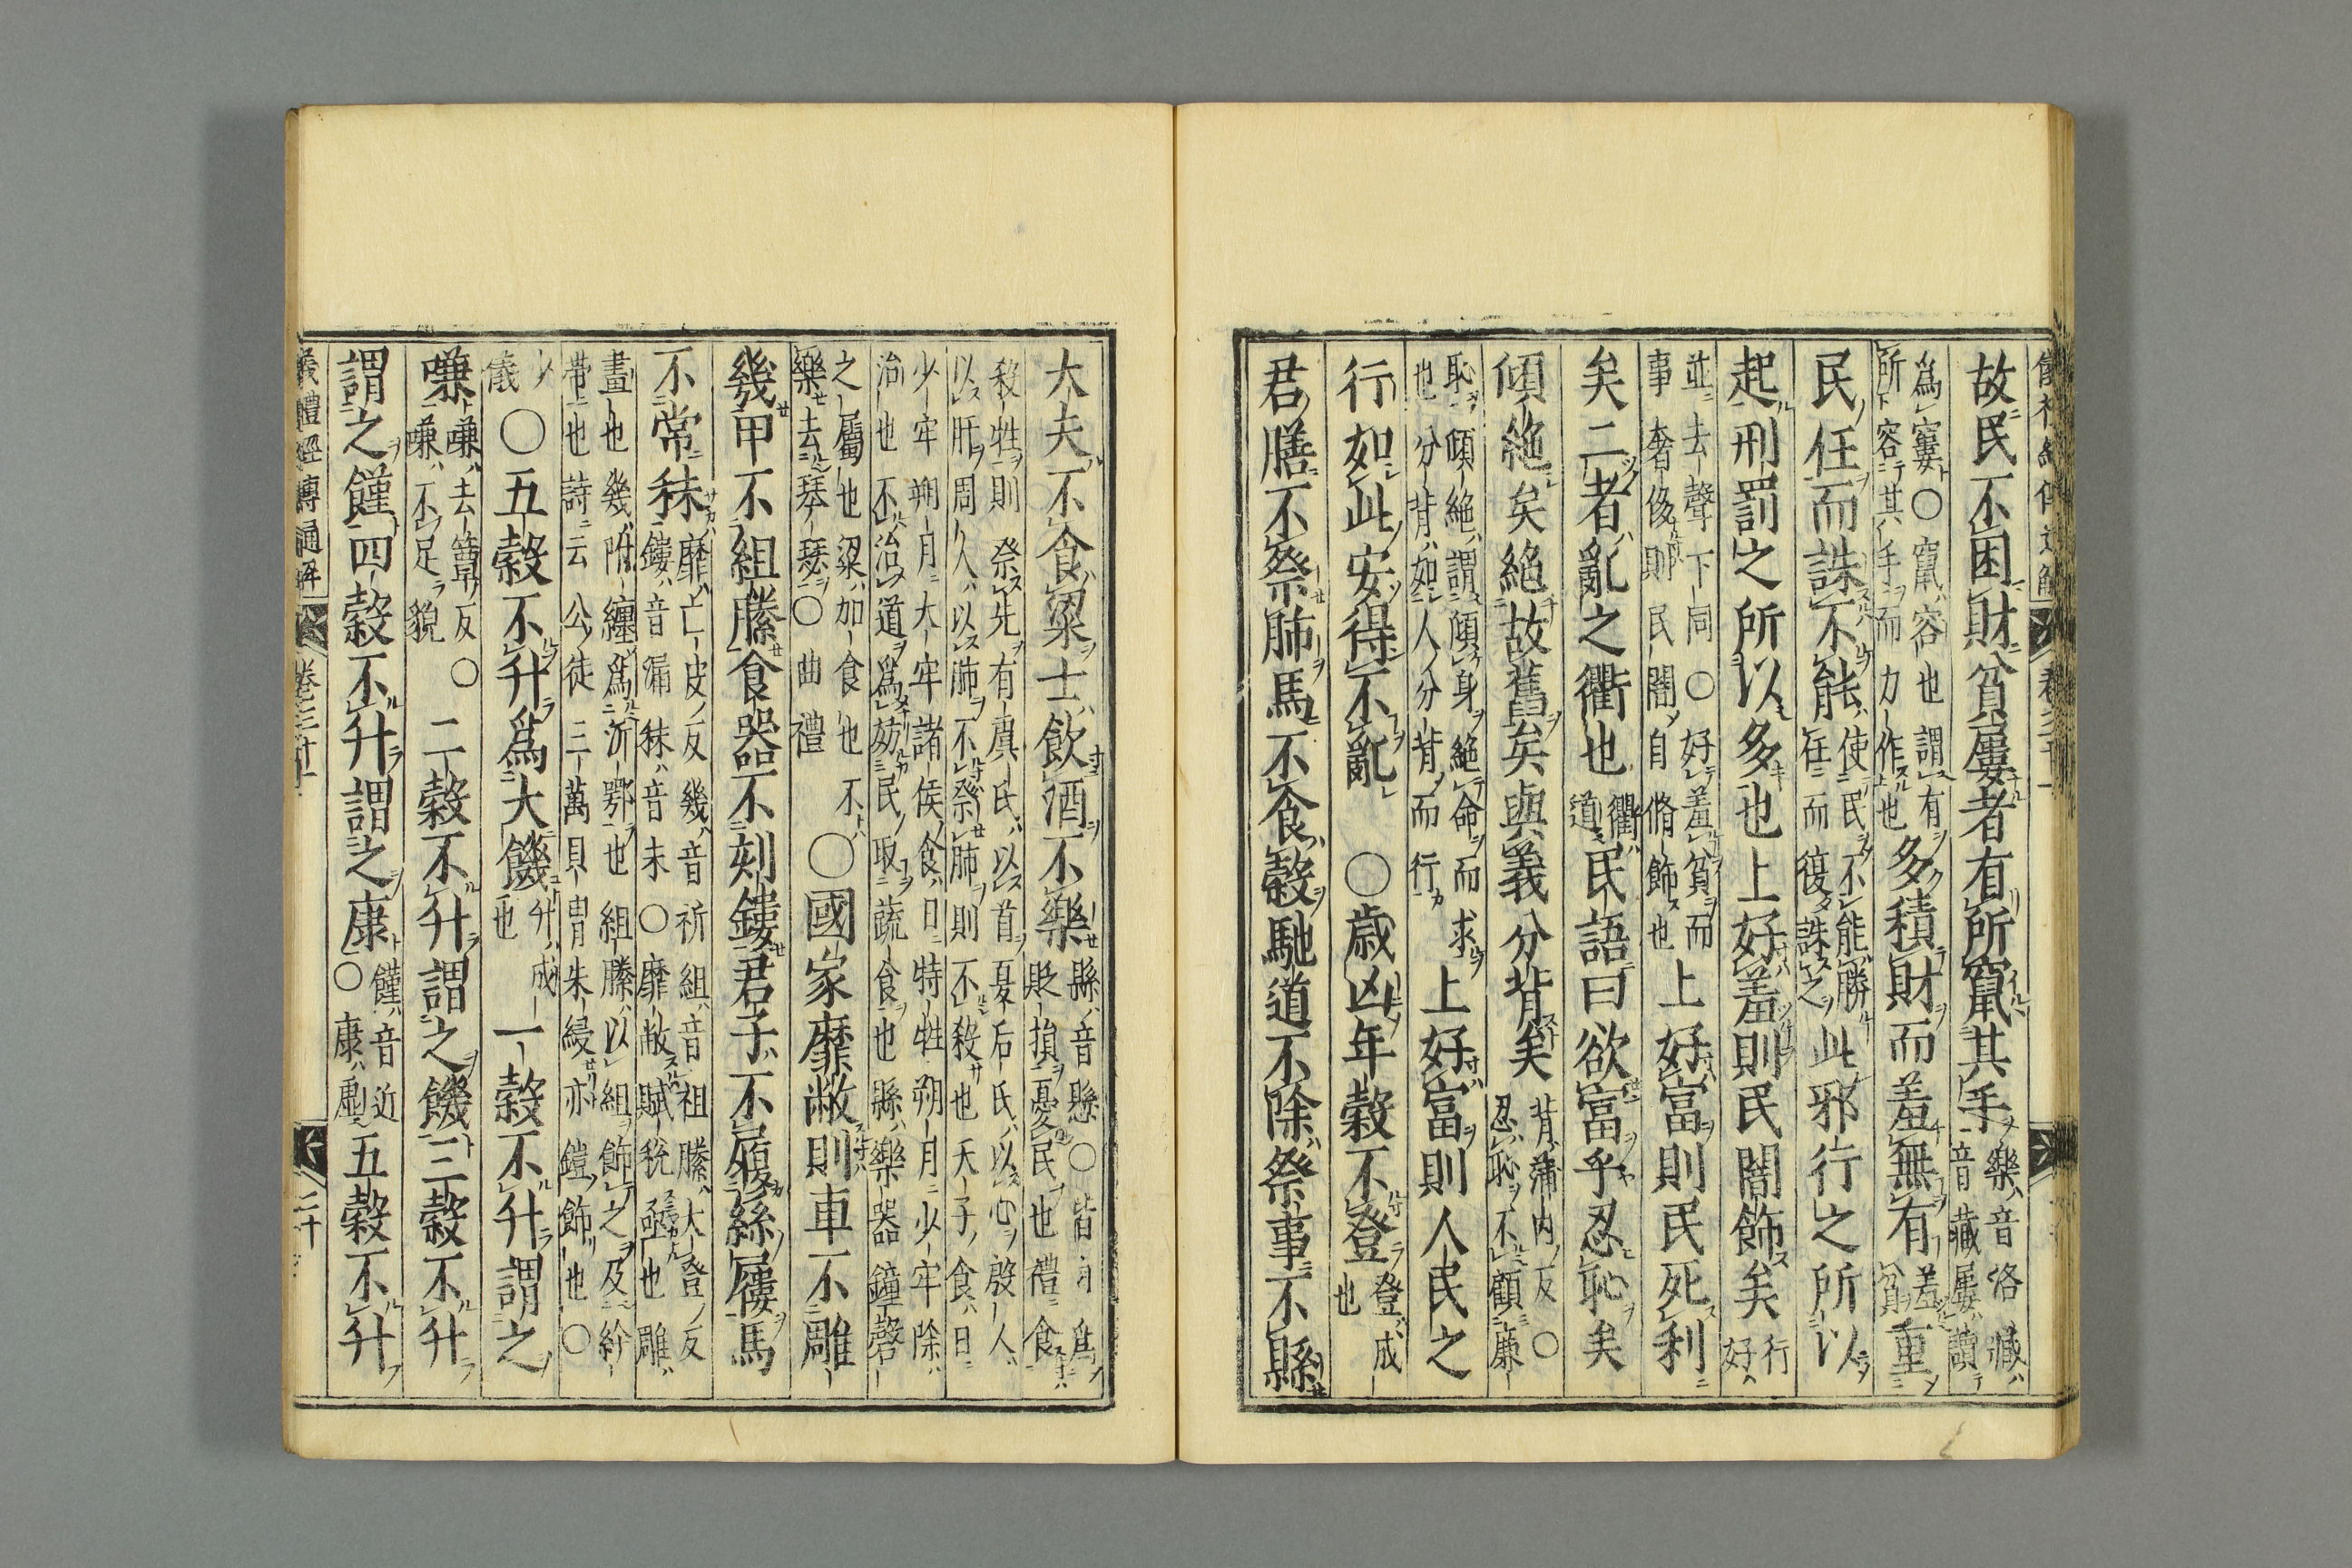 故民不困財貧窶者有所竄其手樂音洛臧音藏屢讀
爲窶○竄容也謂有所容其手而力作也多積財而羞無有羞貧重
民任而誅不能使民不能勝任而復誅之此邪行之所以
起刑罰之所以多也上好羞則民闇飾矣行好
並去聲下同○好羞貧而事奢侈則民闇自脩飾也上好富則民死利
矣二者亂之衢也衢道民語曰欲富乎忍恥矣
傾絕矣絕故舊矣與義分背矣背蒲內反○忍恥不顧廉
恥傾絕謂傾身絕命而求也分背如人分背而行上好富則人民之
行如此安得不亂○歲凶年穀不登登成也
君膳不祭肺馬不食穀馳道不除祭事不縣
大夫不食粱士飲酒不樂縣音懸○皆爲貶損憂民也禮食
殺牲則祭先有虞氏以首夏后氏以心殷人以肝周人以肺不祭肺則不殺也天子食日
少牢朔月大牢諸侯食日特牲朔月少牢除治也不治道爲妨民取蔬食也縣樂器鐘磬
之屬也粱加食也不樂去琴瑟○曲禮○國家靡敝則車不雕
幾甲不組縢食器不刻鏤君子不履絲屨馬
不常秣靡亡皮反幾音祈組音祖縢大登反鏤音漏秣音末○靡敝賦稅亟也雕
畫也幾附纏爲沂鄂也組縢以組飾之及紟帶也詩云公徒三萬貝冑朱綅亦鎧飾也○
少儀○五穀不升爲大饑升成也一穀不升謂之
嗛嗛去簟反○嗛不足貌二穀不升謂之饑三穀不升
謂之饉四穀不升謂之康饉音近○康虛五穀不升
儀禮經傳通解 卷三十一 二十